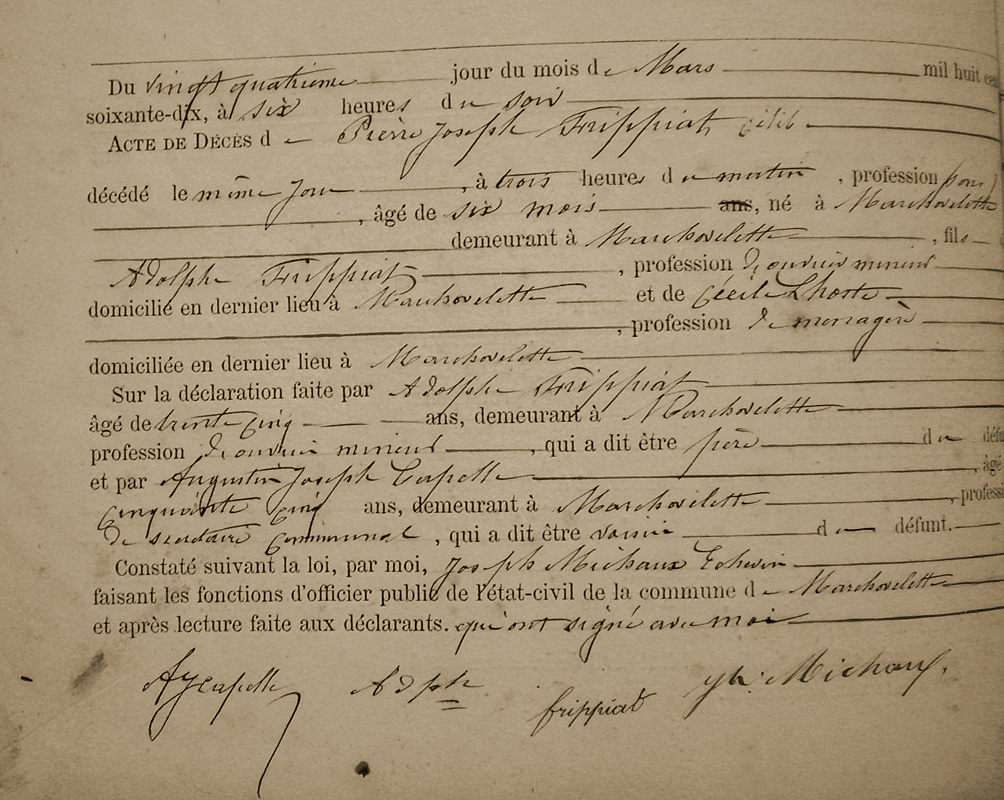 Du vingt quatrième jour du mois de Mars mil huit cent
soixante-dix, à six heures du soir
ACTE DE DÉCÈS de Pierre Joseph Frippiat célib
décédé le même jour, à trois heures du matin, profession
, âgé de six mois ans, né à Marchovelette
demeurant à Marchovelette, fils
Adolphe Frippiat, profession d'ouvrier mineur
domicilié en dernier lieu à Marchovelette et de Cécile Lhoste
, profession de menagère
domiciliée en dernier lieu à Marchovelette
Sur la déclaration faite par Adolphe Frippiat
âgé de trente cinq ans, demeurant à Marchovelette
profession d'ouvrier mineur, qui a dit être père du défu
et par Augustin Joseph Capelle, âgé
cinquante cinq ans, demeurant à Marchovelette, professi
de secrétaire communal, qui a dit être voisin du défunt.
Constaté suivant la loi, par moi, Joseph Michaux Echevin
faisant les fonctions d'officier public de l'état-civil de la commune de Marchovelette
et après lecture faite aux déclarants. qui ont signé avec moi
AJ Capelle Adphe frippiat Jh. Michaux.